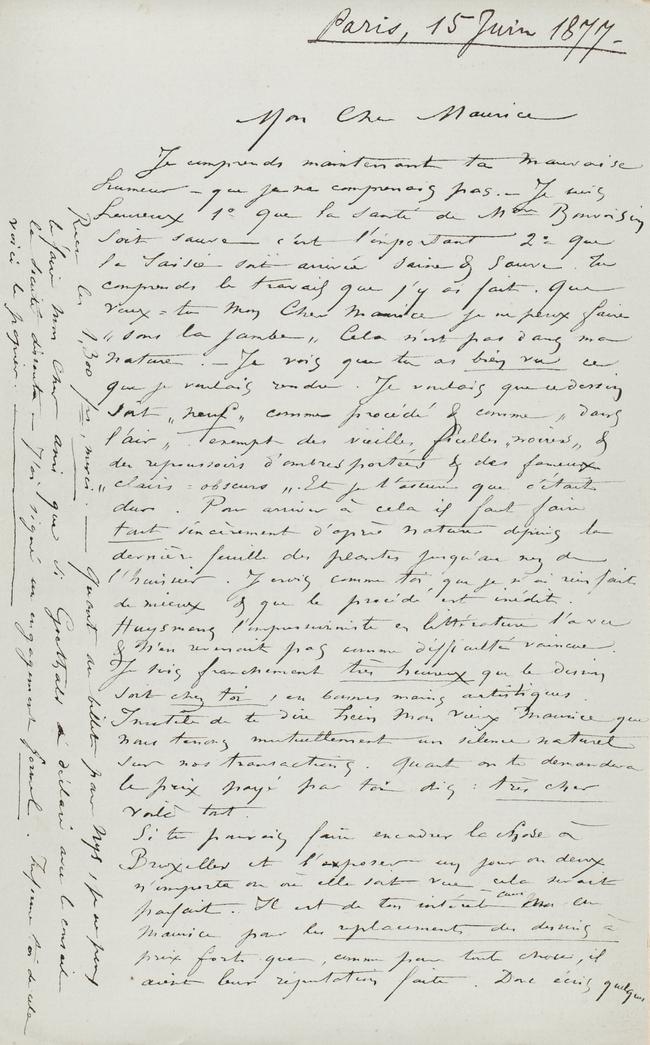 Paris, 15 Juin 1877.
Mon Cher Maurice
Je comprends maintenant ta mauvaise
humeur – que je ne comprenais pas. – Je suis
heureux 1° que la santé de Mme Bonvoisin
soit sauve c'est l'important 2° que
la Saisie soit arrivée saine & sauve. Tu
comprends le travail que j'y ai fait. Que
veux-tu Mon Cher Maurice je ne peux faire
„ sous la jambe „ Cela n'est pas dans ma
nature. – Je vois que tu as bien vu ce
que je voulais rendre. Je voulais que ce dessin
soit „ neuf „ comme procédé & comme „ dans
l'air „ exempt des vieilles ficelles „noires„ &
des repoussoirs d'ombres portées & des fameux
„ clairs=obscurs „. Et je t'assure que c'était
dur. Pour arriver à cela il faut faire
tout sincèrement d'après nature depuis la
dernière feuille des plantes jusqu'au nez de
l'huissier. Je crois comme toi que je n'ai rien fait
de mieux & que le procédé est inédit.
Huysmans l'impressionniste en littérature l'a vu
& n'en revenait pas comme difficulté vaincue.
Je suis franchement très heureux que le dessin
soit chez toi, en bonnes mains artistiques
Inutile de te dire hein mon vieux Maurice que
nous tenons mutuellement un silence naturel
sur nos transactions. Quant on te demandera
le prix payé par toi dis : très cher
voilà tout.
Si tu pouvais faire encadrer la chose à
Bruxelles et l'exposer un jour ou deux
n'importe où où elle soit vue cela serait
parfait. Il est de ton intérêt cher
Maurice pour les replacements des dessins à
prix forts que, comme pour toute chose, il
aient leur réputation faite. Donc écris quelques
Reçu les 1,300 frs, merci. – Quant au billet pour Nys, je ne peux
le faire Mon Cher ami que si Goethals à déclaré avec le conseil
la Société dissoute – J'ai signé un engagement formel. Informe toi de cela
voici le papier